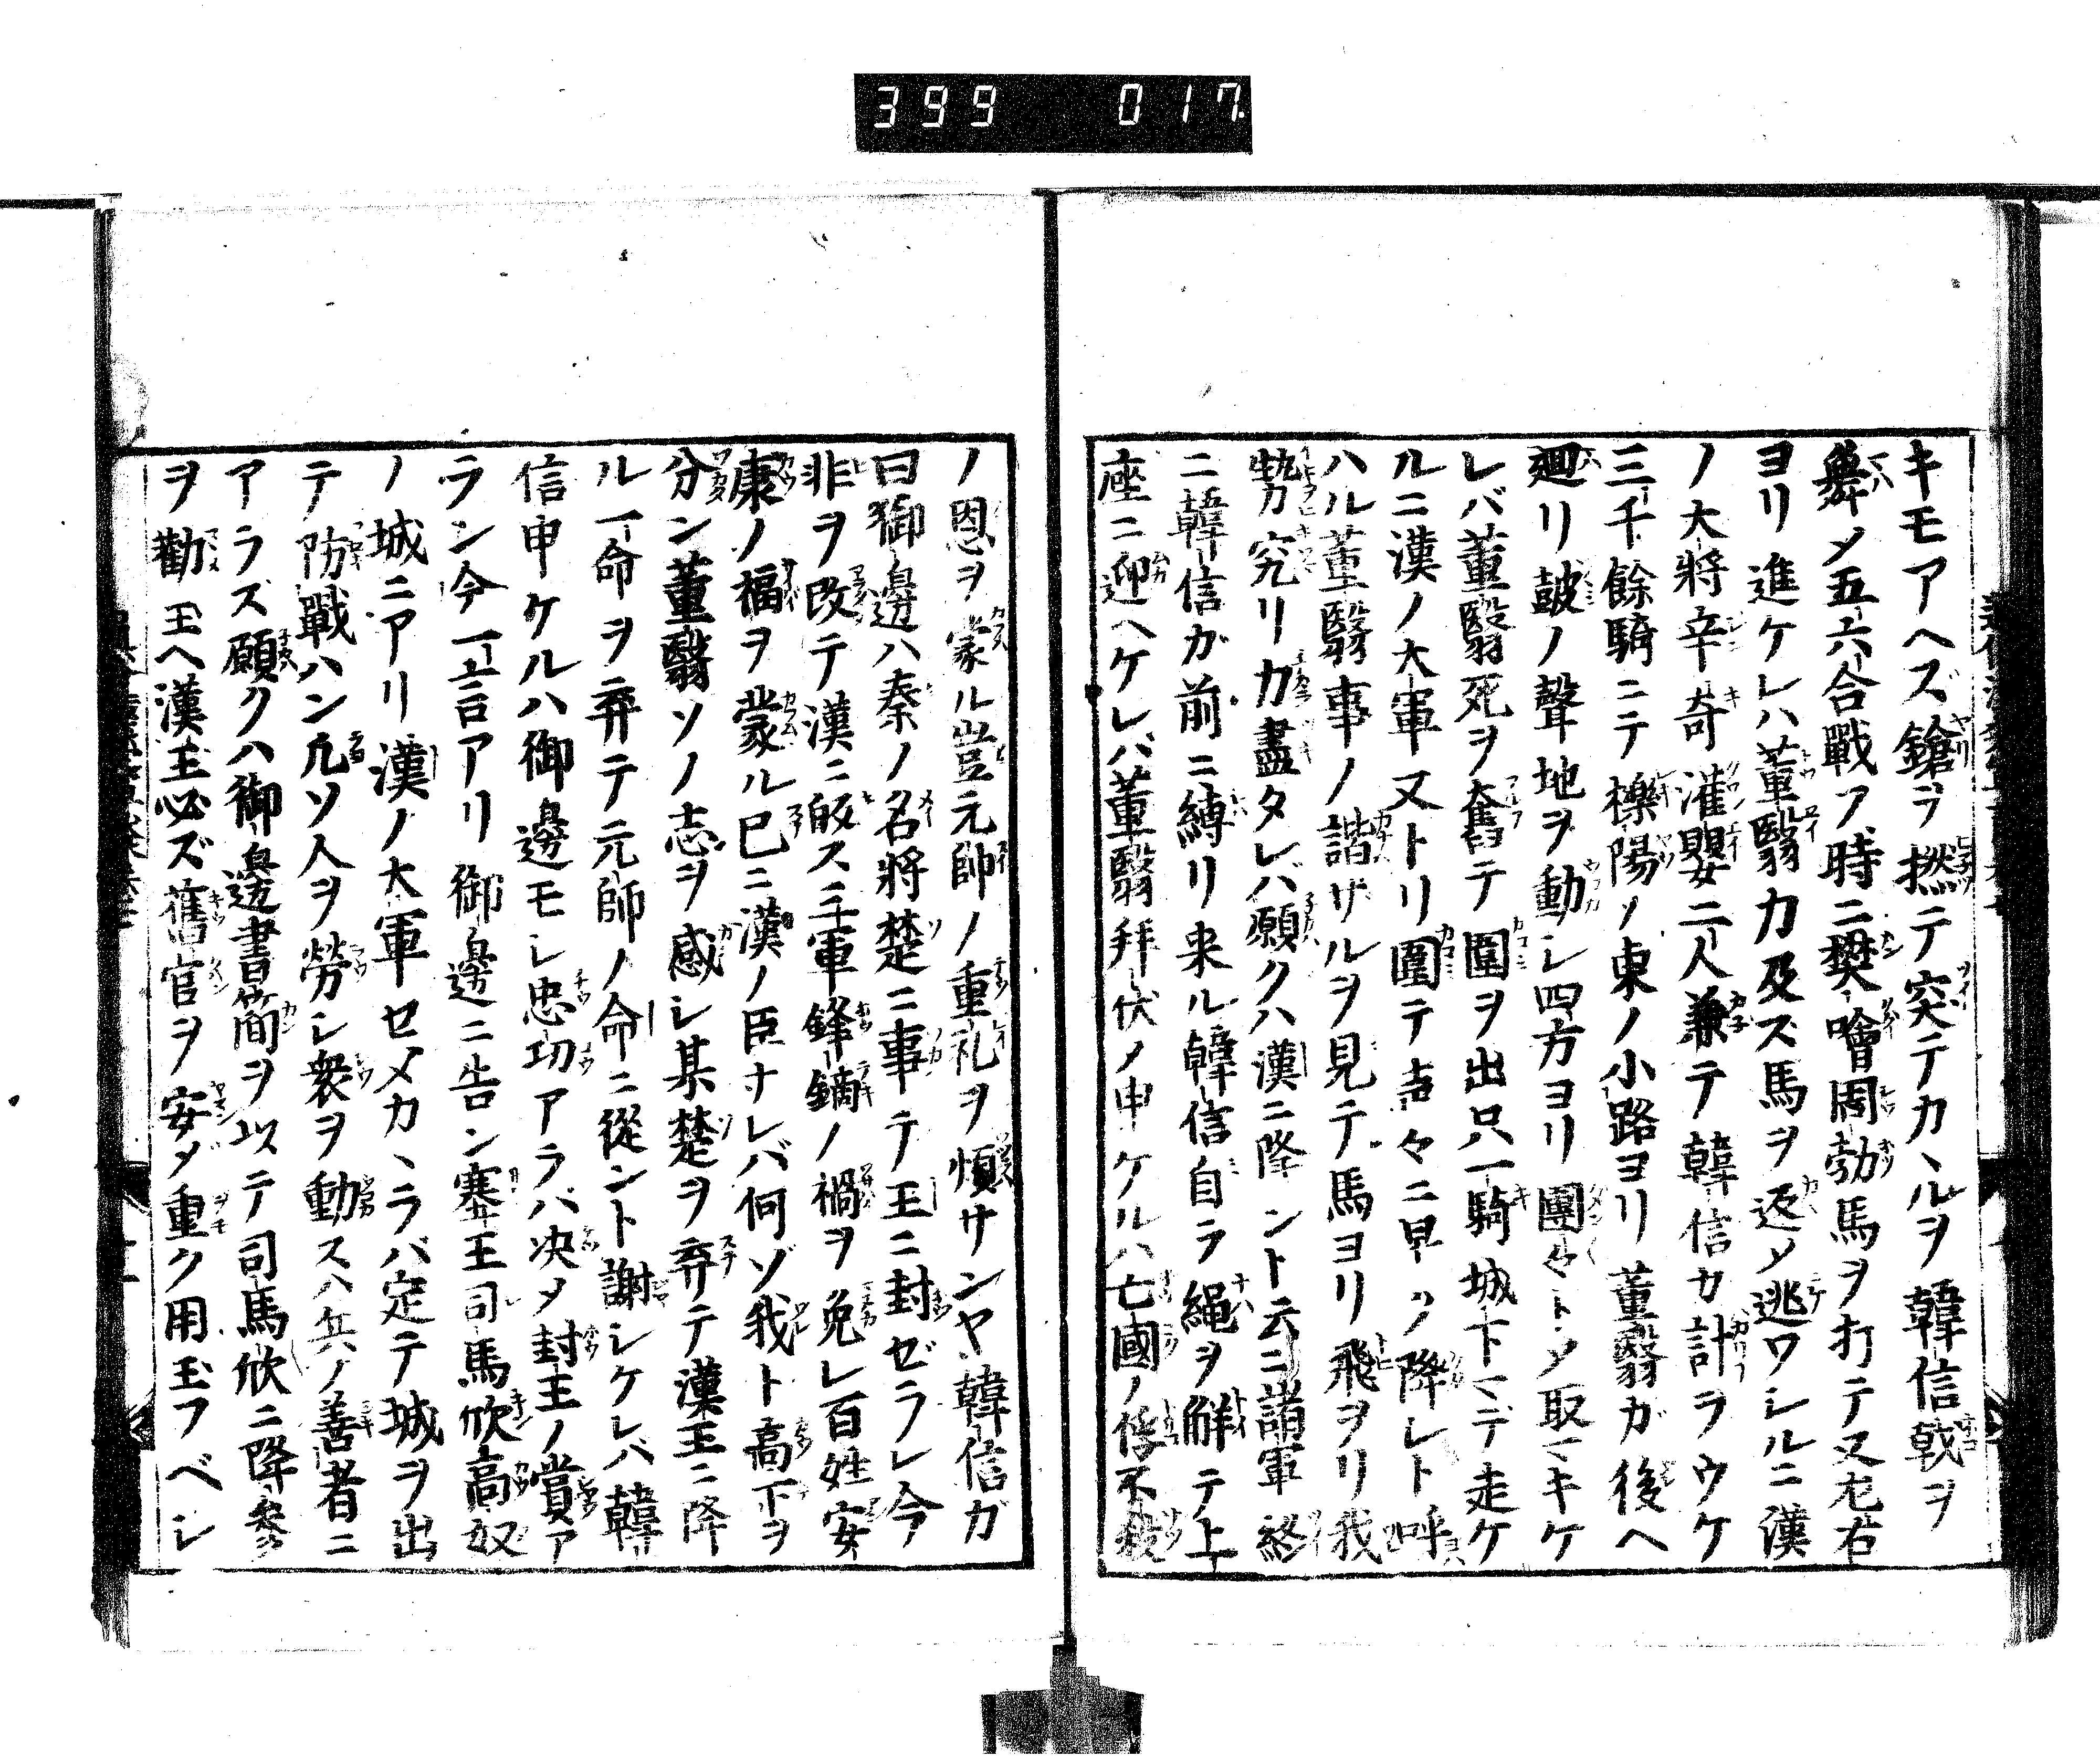 399 017
キモアヘズ鎗ヲ撚テ突テカヽルヲ韓信戟ヲ
舞メ五六合戰フ時ニ樊噲周勃馬ヲ打テ又左右
ヨリ進ケレハ董翳力及ズ馬ヲ返メ逃ワシルニ漢
ノ大將辛奇灌嬰二人兼テ韓信カ計ヲウケ
三千餘騎ニテ櫟陽ノ東ノ小路ヨリ董翳ガ後ヘ
廻リ皷ノ聲地ヲ動シ四方ヨリ團々トメ取マキケ
レバ董翳死ヲ奮テ圍ヲ出只一騎城下マデ走ケ
ルニ漢ノ大軍又トリ圍テ声々ニ早ク降レト呼
ハル董翳事ノ諧ザルヲ見テ馬ヨリ飛ヲリ我
勢究リカ盡タレバ願クハ漢ニ降ントニ諸軍終
ニ韓信ガ前ニ縛リ来ル韓信自ラ繩ヲ解テ上
座ニ迎ヘケレバ董翳拜伏メ申ケルハ亡國ノ俘不殺
ノ恩ヲ蒙ル豈元帥ノ重礼ヲ煩サンヤ韓信ガ
曰御邊ハ秦ノ名將楚ニ事テ王ニ封ゼラレ今
非ヲ改テ漢ニ皈ス三軍鋒鏑ノ禍ヲ免レ百姓安
康ノ福ヲ蒙ル已ニ漢ノ臣ナレバ何ゾ我ト高下ヲ
分ン董翳ソノ志ヲ感シ某楚ヲ弃テ漢王ニ降
ル一命ヲ弃テ元帥ノ命ニ從ント謝シケレバ韓
信申ケルハ御邊モシ忠功アラバ决メ封王ノ賞ア
ラン今一言アリ御邊ニ告ン塞王司馬欣高奴
ノ城ニアリ漢ノ大軍セメカヽラバ定テ城ヲ出
テ防戰ハン凢ソ人ヲ勞シ衆ヲ動スハ兵ノ善者ニ
アラズ願クハ御邊書簡ヲ以テ司馬欣ニ降參
ヲ勸玉ヘ漢王必ズ舊官ヲ安メ重ク用玉フベシ